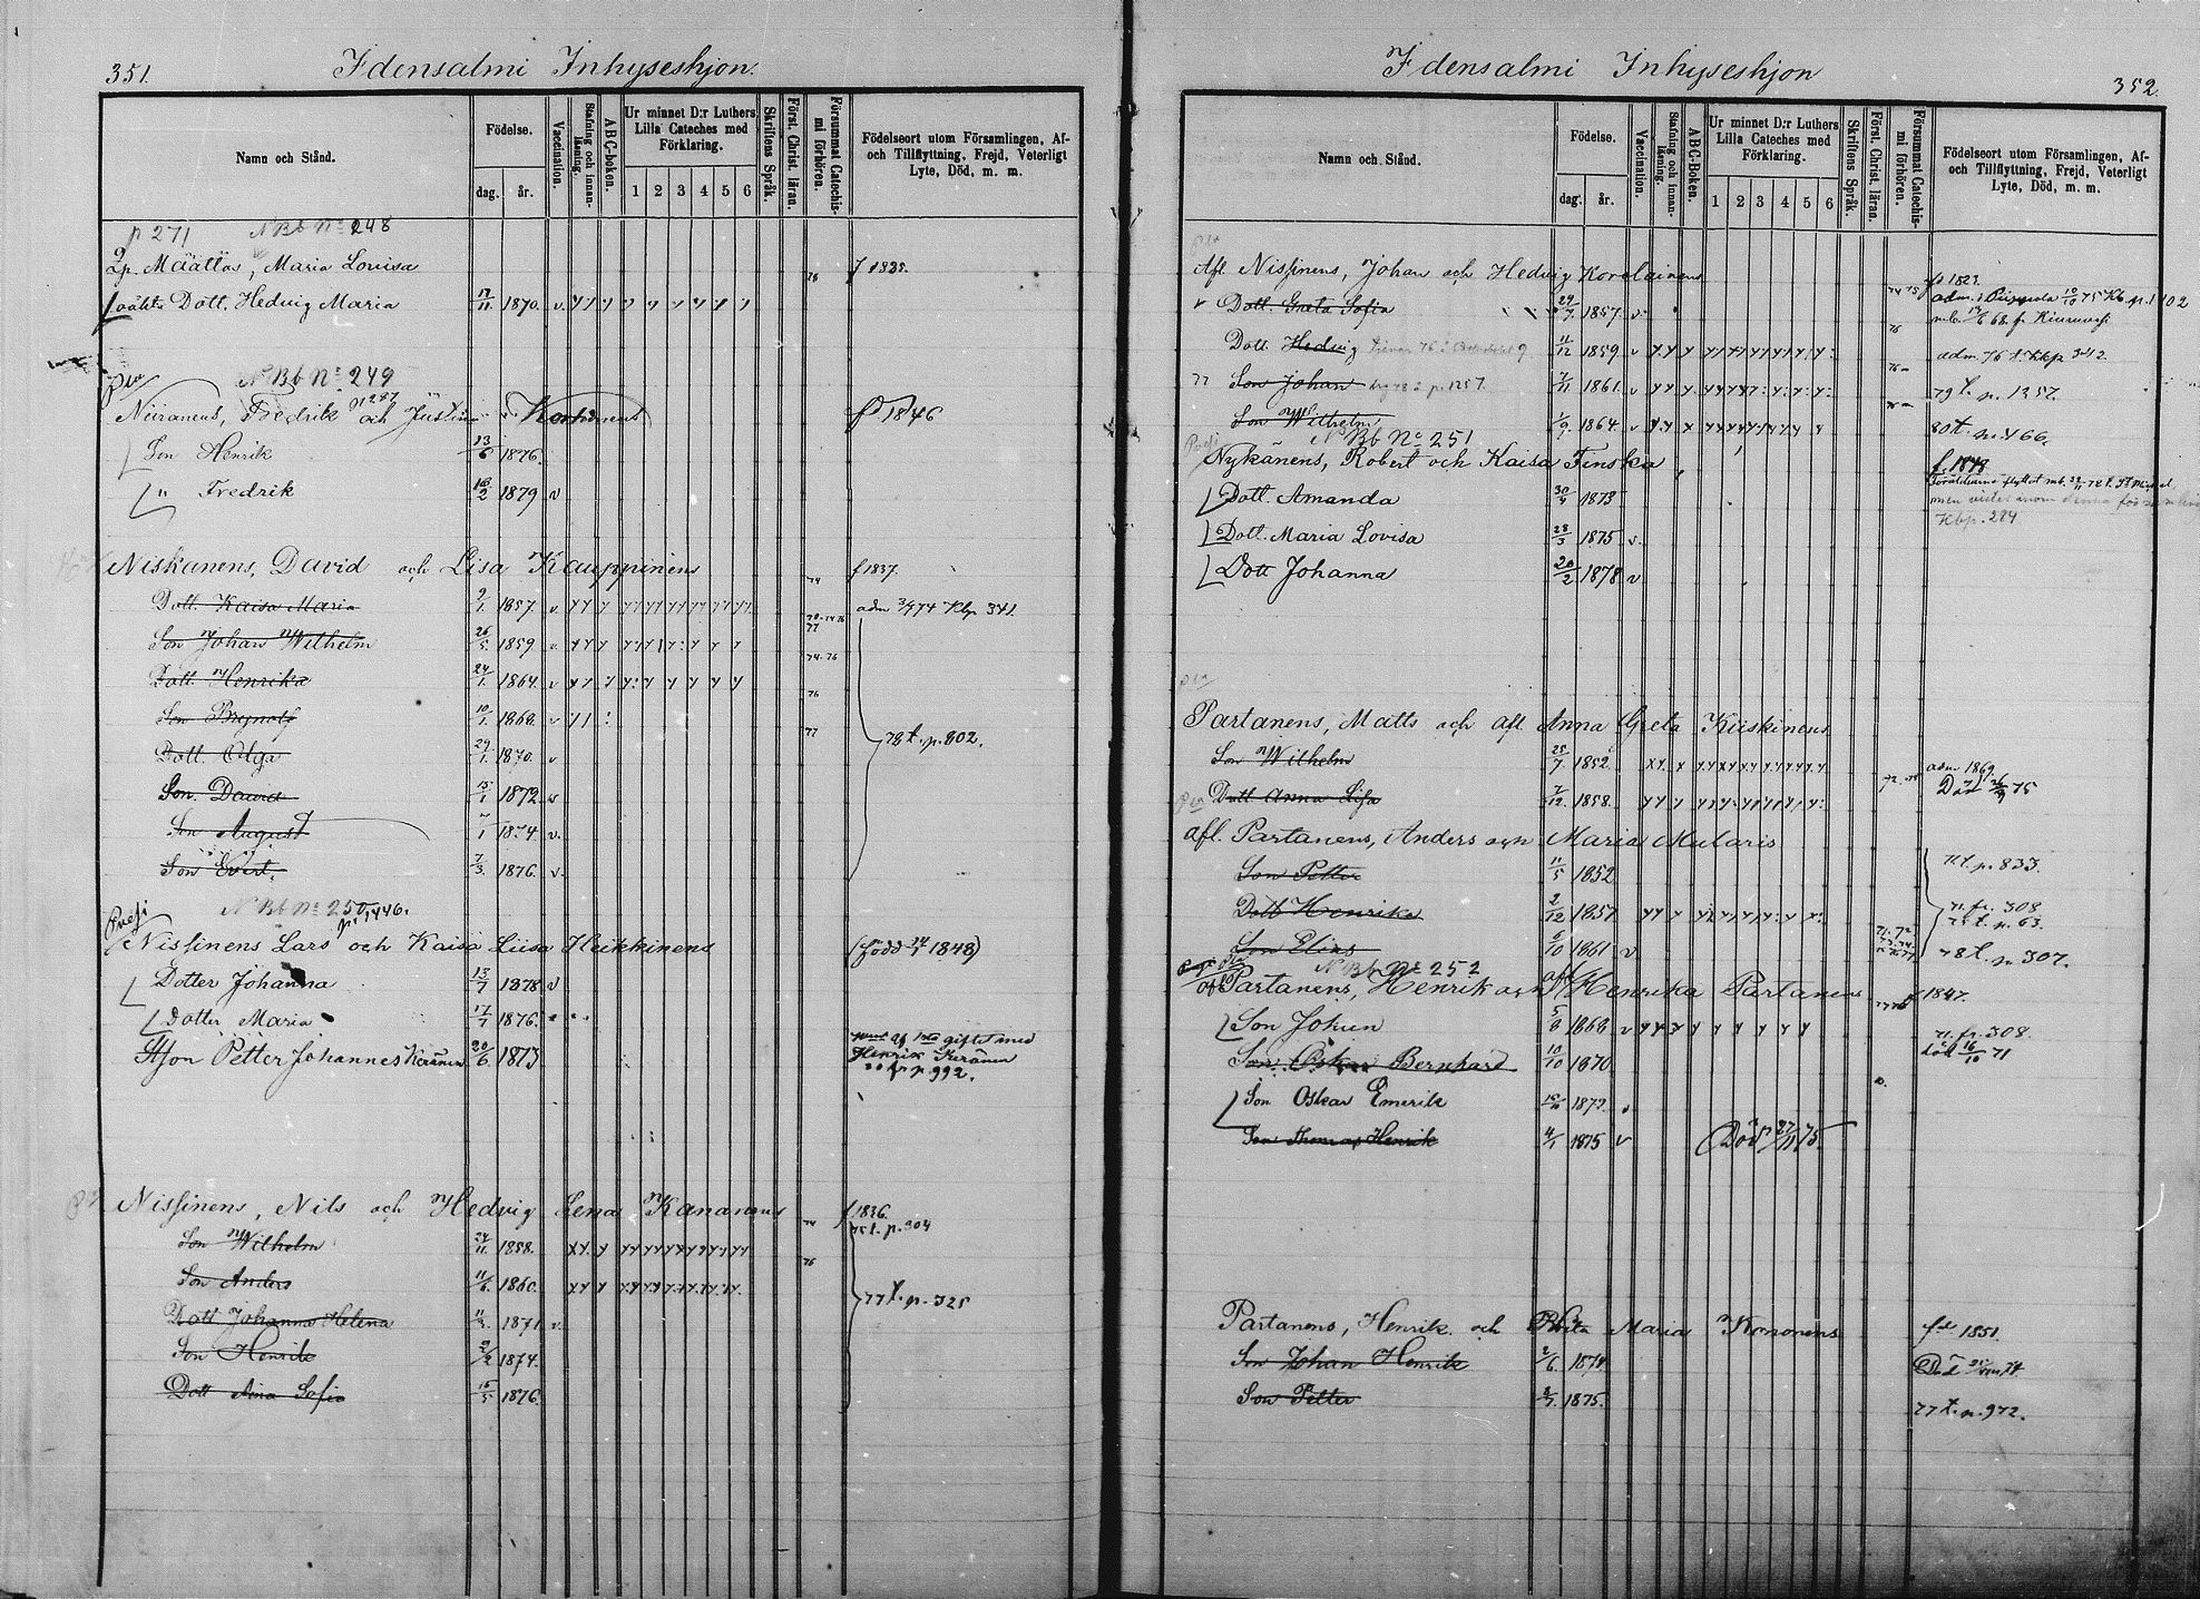 351.
Idensalmi Inhyseshjon.
Namn och Stånd.
Födelse.
dag.
år.
Vaccination.
Stafning och innanläsning.
ABC-boken.
Ur minnet D:r Luthers Lilla Cateches med Förklaring.
1 2 3 4 5 6
Skriftens Språk.
Först. Christ. läran.
Försummat Catechismi förhören.
Födelseort utom Församlingen, Af- och Tillflyttning, Frejd, Veterligt Lyte, Död, m. m.
p 271 N Bb No 248
Qp. Määttäs, Maria Lovisa 78 f 1835.
oäkta Dott. Hedvig Maria 17/11 1870. v.
N Bb No 249
p 287
Niiranens, Fredrik och Justina Korhonens f 1846
Son Henrik 13/6 1876.
" Fredrik 16/2 1879 v
Niskanens, David och Lisa Kauppinens 74 f 1837.
Dott. Kaisa Maria 2/1. 1857. v. adm 3/4 74 Kbp 341.
Son Johan Wilhelm 26/5. 1859 v. 77
Dott. Henrika 24/1. 1864. v 74.76
Son Brynolf 10/1. 1868. v 76
Dott. Olga 29/1. 1870. v 77 78 t. p. 802.
Son. David 15/1 1872 v
Son August 7/1 1874. v.
Son Evert. 7/3. 1876. v.
N Bb No 250 p. 1446.
Nissinens Lars och Kaisa Liisa Heikkinens (född 24/4 1848)
Dotter Johanna 13/7 1878 v
Dotter Maria 17/7 1876.
Stson Petter Johannes Keränen 20/6 1873
gift med
Henrik Keränen
p. 992.
Nissinens, Nils och Hedvig Lena Kananens 74 f 1836.
75 t. p. 304
Son Wilhelm 24/11. 1858. 76
Son Anders 11/6. 1860.
Dott Johanna Helena 11/3. 1871. v. 77 t. p. 325
Son Henrik 2/2 1874.
Dott Aina Sofia 15/5 1876.
Idensalmi Inhyseshjon
352.
Namn och Stånd.
Födelse.
dag.
år.
Vaccination.
Stafning och innanläsning.
ABC-Boken.
Ur minnet D:r Luthers Lilla Cateches med Förklaring.
1 2 3 4 5 6
Skriftens Språk.
Först. Christ. läran.
Försummat Catechismi förhören.
Födelseort utom Församlingen, Af- och Tillflyttning, Frejd, Veterligt Lyte, Död, m. m.
Afl. Nissinens, Johan och Hedvig Korolainens f 1823.
Dott. Greta Sofia 29/7. 1857. v. 74 75 adm. i Piippola 10/10 75 Kb. p. 1102
Dott. Hedvig 11/12 1859 v 76 adm 76 t. Kbp 342.
77 Son Johan p. 1257. 7/11 1861. v 79 t. p. 1257.
Son Wilhelm 1/9. 1864. v 80 t. p. 466.
N Bb No 251
Nykänens, Robert och Kaisa Finska f. 1848
Dott. Amanda 30/4 1873 Kbp. 284
Dott. Maria Lovisa 28/3 1875 v.
Dott Johanna 20/2 1878 v
Partanens, Matts och afl. Anna Greta Kiiskinens
Son Wilhelm 25/7. 1852. adm 1869.
Dott Anna Lisa 7/12. 1858. Död 26/4 75
afl. Partanens, Anders och Maria Mularis
Son Petter 11/5 1852 71 t. p. 833.
Dott Henrika 2/12 1857 71. fr. 308
75 t. p. 63.
Son Elias 6/10 1861 v 78 t. p. 307.
N Bb No 252
af Partanens, Henrik och afl Henrika Partanens f 1847.
Son Johan 5/8 1868 v 71. fr. 308.
Son Oskar Bernhard 10/10 1870 död 16/10 71
Son Oskar Emerik 1872.
Son Thomas Henrik 4/1 1875 v Död 27/11 75
Partanens, Henrik och Brita Maria Kononens f 1851.
Son Johan Henrik 2/6. 1874 Död 74.
Son Petter 1875. 77 t. p. 972.